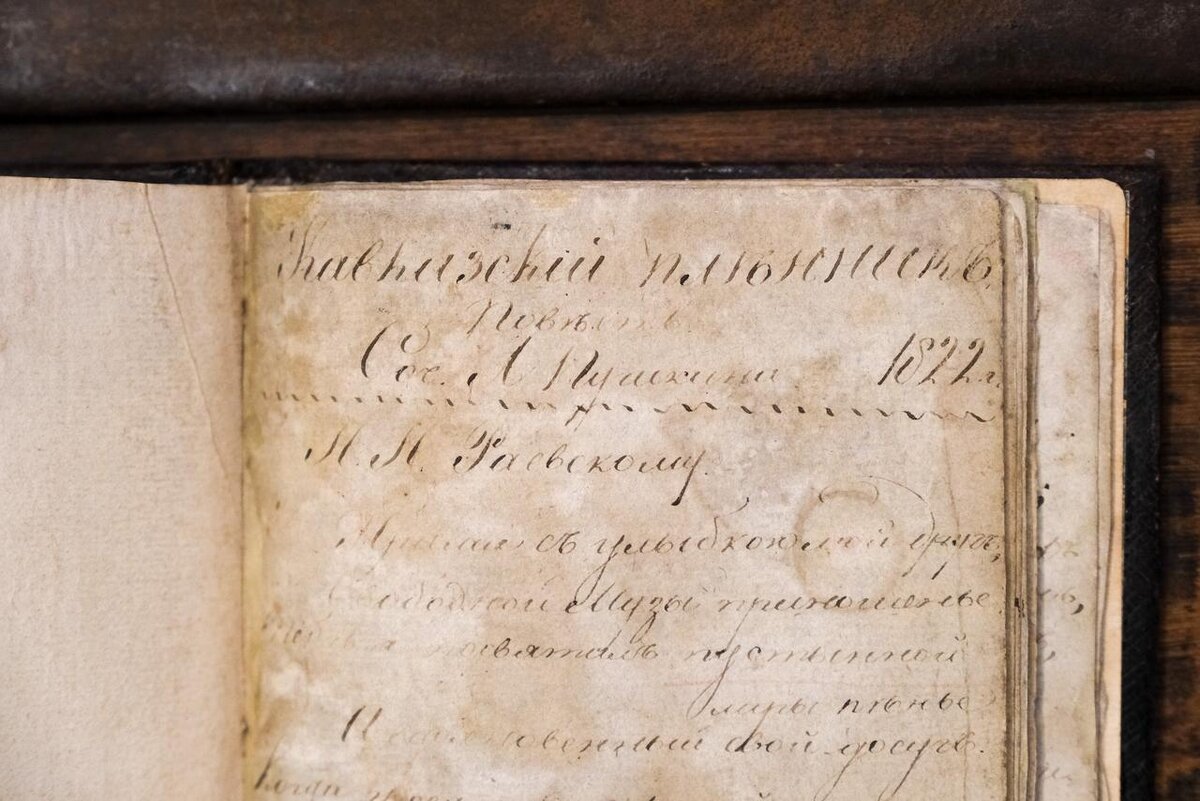 Кавказскій плѣнникъ.
Повѣсть
Соч. А Пушкина 1822 г.
Н. Н. Раевскому.
Прими съ улыбкою мой другъ,
Свободной Музы приношенье
Тебѣ я посвятилъ пустынной
лиры пѣнье
И вдохновенный свой досугъ.
Когда